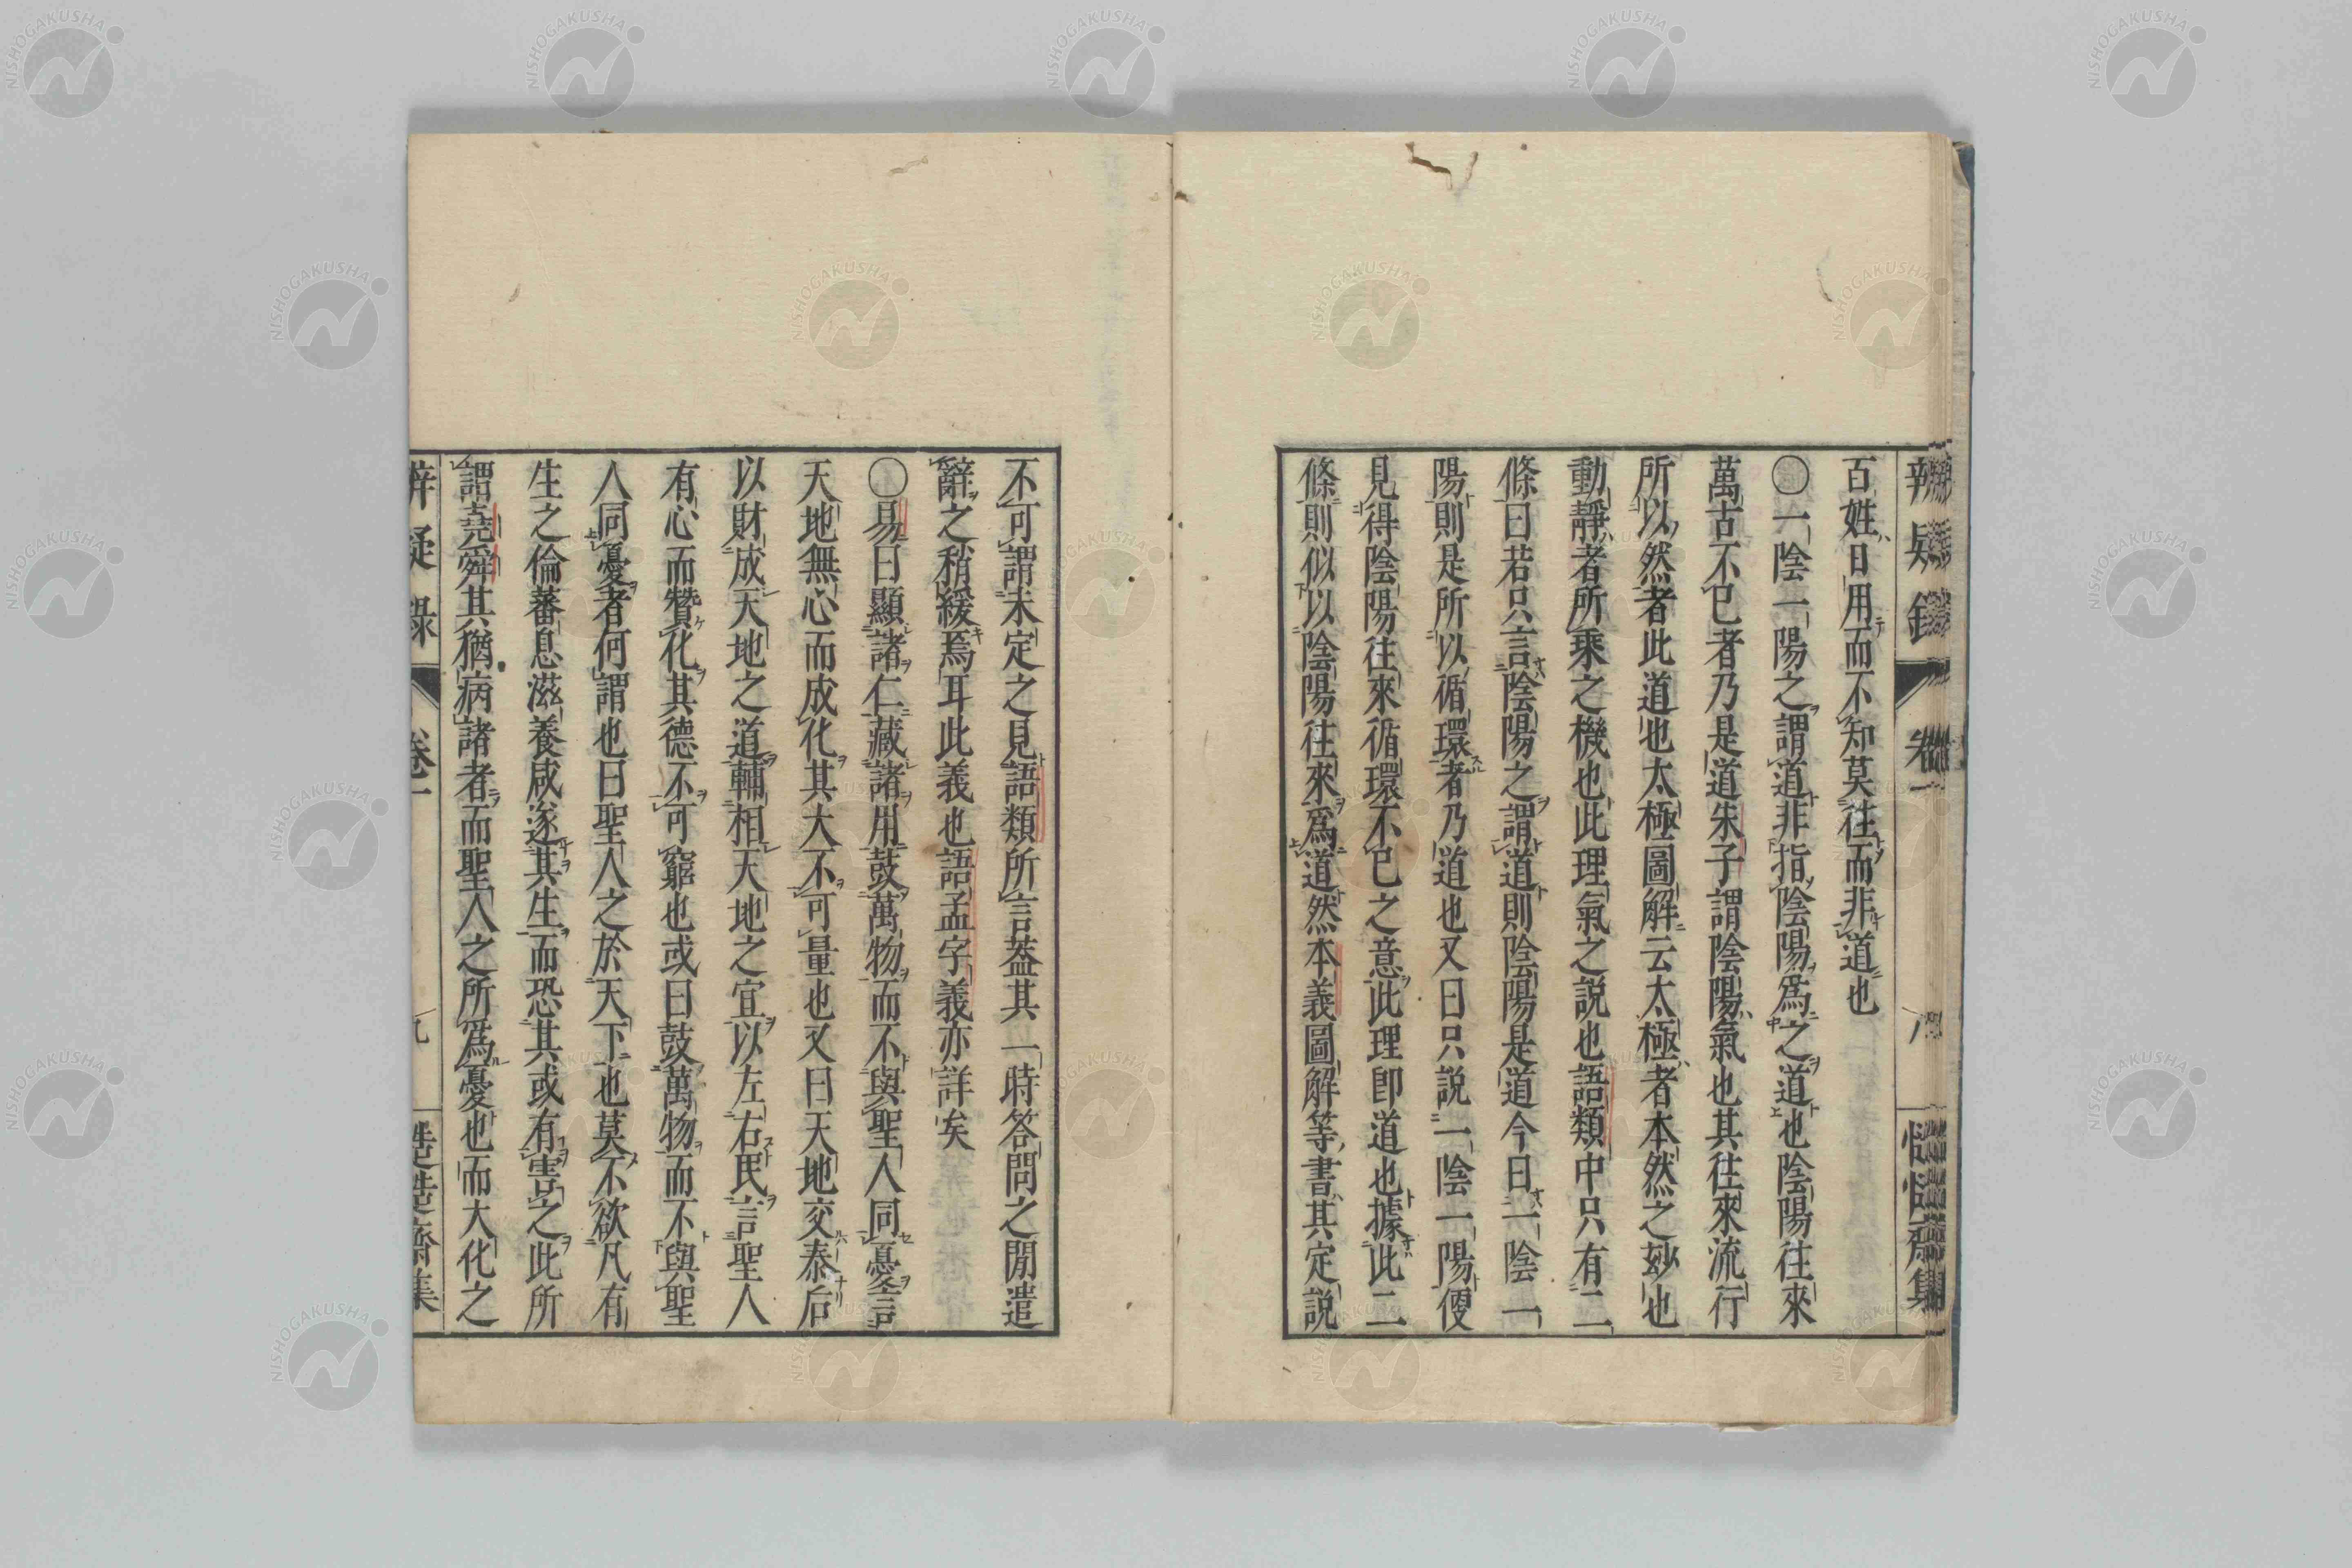 辨疑錄 卷一 八 慥慥齋集
百姓日用而不知莫往而非道也
〇一陰一陽之謂道非指陰陽爲之道也陰陽往來
萬古不已者乃是道朱子謂陰陽氣也其往來流行
所以然者此道也太極圖解云太極者本然之妙也
動靜者所乘之機也此理氣之說也語類中只有二
條曰若只言陰陽之謂道則陰陽是道今曰一陰一
陽則是所以循環者乃道也又曰只說一陰一陽便
見得陰陽往來循環不已之意此理卽道也據此二
條則似以陰陽往來爲道然本義圖解等書其定說
不可謂未定之見語類所言蓋其一時答問之間遣
辭之稍緩焉耳此義也語孟字義亦詳矣
〇易曰顯諸仁藏諸用鼓萬物而不與聖人同憂言
天地無心而成化其大不可量也又曰天地交泰后
以財成天地之道輔相天地之宜以左右民言聖人
有心而贊化其德不可窮也或曰鼓萬物而不與聖
人同憂者何謂也曰聖人之於天下也莫不欲凡有
生之倫蕃息滋養咸遂其生而恐其或有害之此所
謂堯舜其猶病諸者而聖人之所爲憂也而大化之
辨疑錄 卷一 九 慥慥齋集
NISHOGAKUSHA